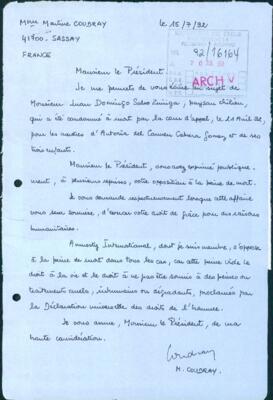 Mme Martine COUDRAY
le 15/7/92
41700 - SASSAY
FRANCE
92/16164
ARCH
Monsieur le Président,
Je me permets de vous écrire au sujet de
Monsieur Juan Domingo Salvo Zuniga, paysan chilien,
qui a été condamné à mort par la cour d'appel, le 11 Avril 92,
pour les meurtres d'Antonia del Carmen Cabera Gomez et de ses
trois enfants.
Monsieur le Président, vous avez exprimé publique-
ment, à plusieurs reprises, votre opposition à la peine de mort.
Je vous demande respectueusement lorsque cette affaire
vous sera soumise, d'exercer votre droit de grâce pour des raisons
humanitaires.
Amnesty International, dont je suis membre, s'oppose
à la peine de mort dans tous les cas, car cette peine viole le
droit à la vie et le droit à ne pas être soumis à des peines ou
traitements cruels, inhumains ou dégradants, proclamés par
la Déclaration universelle des droits de l'homme.
Je vous assure, Monsieur le Président, de ma
haute considération.
Coudray
M. COUDRAY.